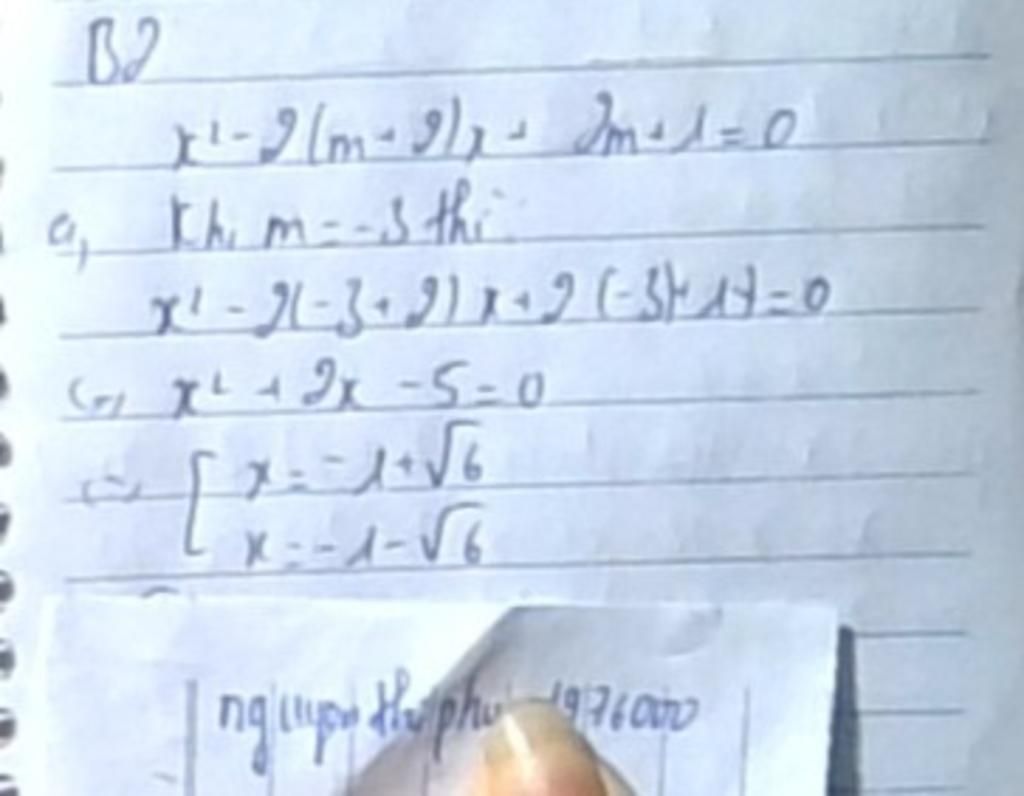 B2
x² - 2(m + 2)x + 2m + 1 = 0
a, Khi m = -3 thì
x² - 2(-3 + 2)x + 2(-3) + 1 = 0
(=) x² + 2x - 5 = 0
(=) [ x = -1 + √6
x = -1 - √6
nguyen thi phu 1976000